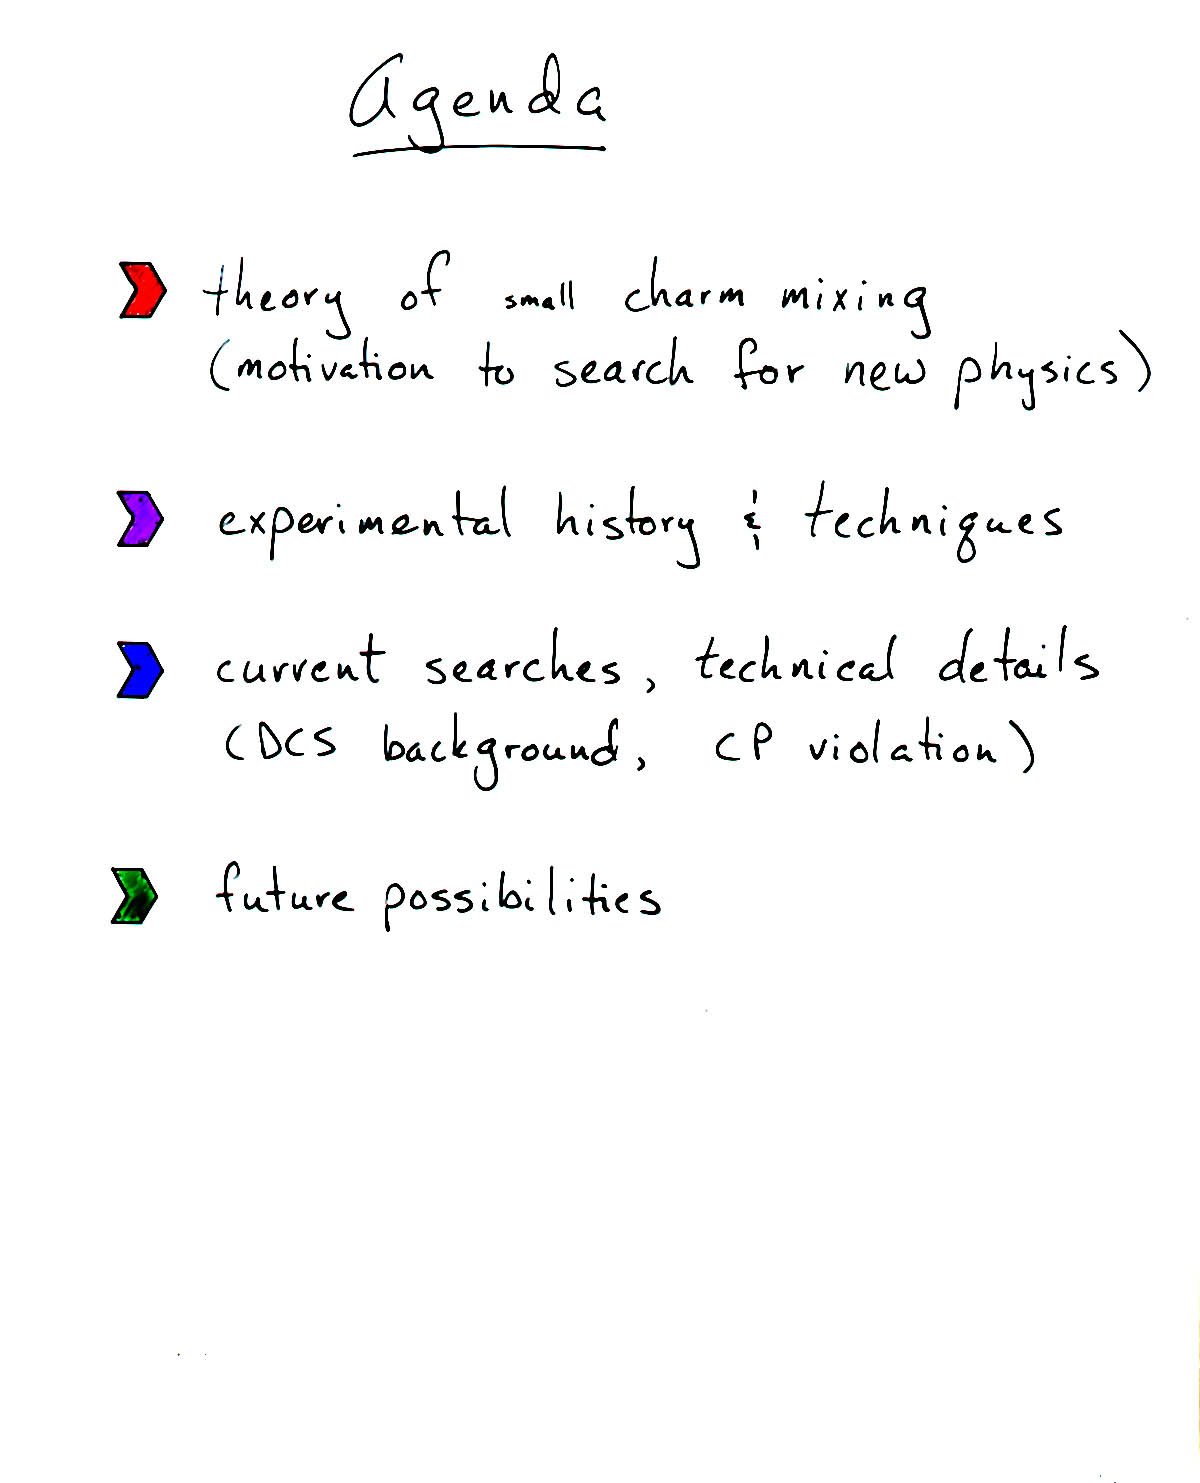 Agenda
theory of small charm mixing
(motivation to search for new physics)
experimental history & techniques
current searches, technical details
(DCS background, CP violation)
future possibilities